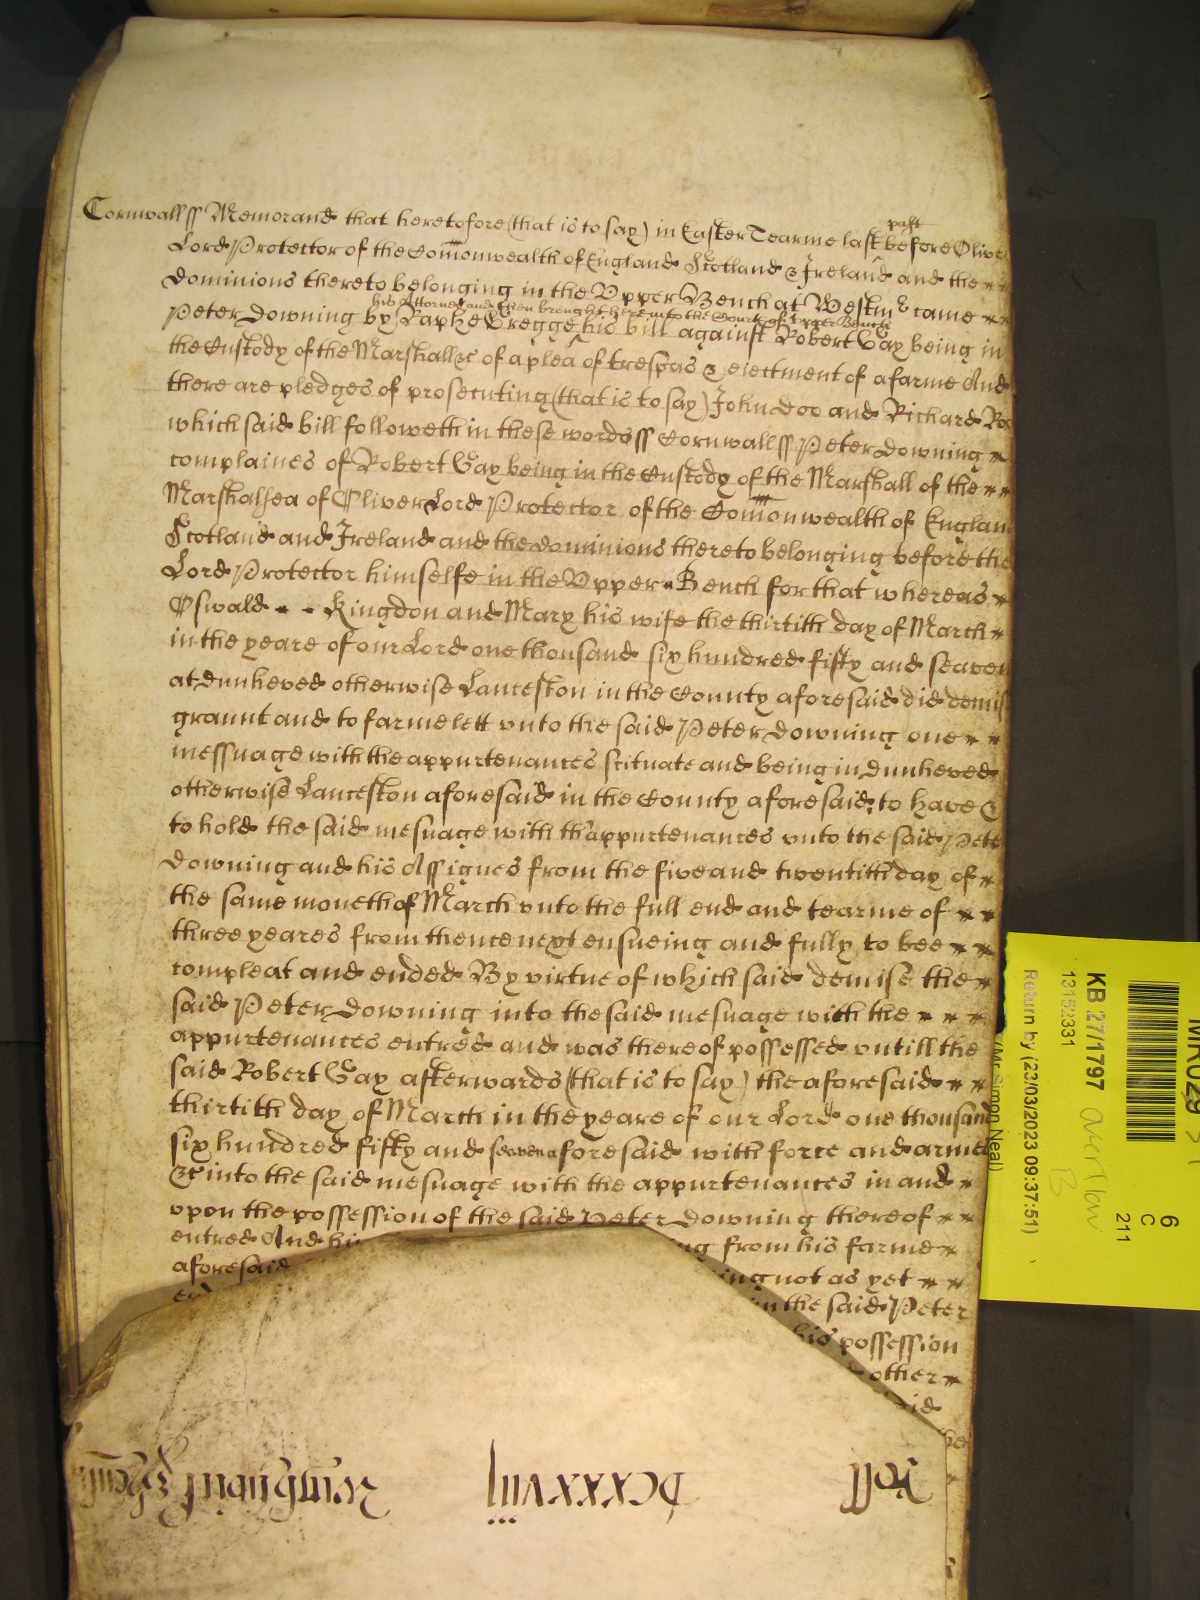 Cornwall ss Memorand that heretofore (that is to say) in Easter Tearme last past before Oliver
Lord Protector of the Comonwealth of England Scotland & Ireland and the
Dominions thereto belonging in the Upper Bench at Westmr came
his Attorney and then brought here into the Court of Upper Bench
Peter Downing by Raphe Gregge his bill against Robert Gay being in
the Custody of the Marshall &c of a plea of trespas & eiectment of a farme And
there are pledges of prosecuting (that is to say) John Doo and Richard Roo
which said bill followeth in these words ss Cornwall ss Peter Downing
complaines of Robert Gay being in the Custody of the Marshall of the
Marshalsea of Oliver Lord Protector of the Comonwealth of England
Scotland and Ireland and the dominions thereto belonging before the
Lord Protector himselfe in the Upper Bench for that whereas
Oswald Kingdon and Mary his wife the thirtith day of March
in the yeare of our Lord one thousand six hundred fifty and seaven
at Dunheved otherwise Lanceston in the County aforesaid did demis
graunt and to farme lett vnto the said Peter Downing one
messuage with the appurtenances scituate and being in Dunheved
otherwise Lanceston aforesaid in the County aforesaid to have &
to hold the said mesuage with th'appurtenances vnto the said Pete
Downing and his Assignes from the five and twentith day of
the same moneth of March vnto the full end and tearme of
three yeares from thence next ensueing and fully to bee
compleat and ended By virtue of which said demise the
said Peter Downing into the said mesuage with the
appurtenances entred and was thereof possessed vntill the
said Robert Gay afterwards (that is to say) the aforesaid
thirtith day of March in the yeare of our Lord one thousand
six hundred fifty and seaven aforesaid with force and armes
&c into the said mesuage with the appurtenances in and
vpon the possession of the said Peter Downing thereof
entred And hi ng from his farme
aforesaid ing not as yet
in the said Peter
his possession
other
id
Roll
DCXXXVIII
KB 27/1797
13152331
Return by (23/03/2023 09:37:51)
(Mr Simon Neal)
overflow
B
6
C
211